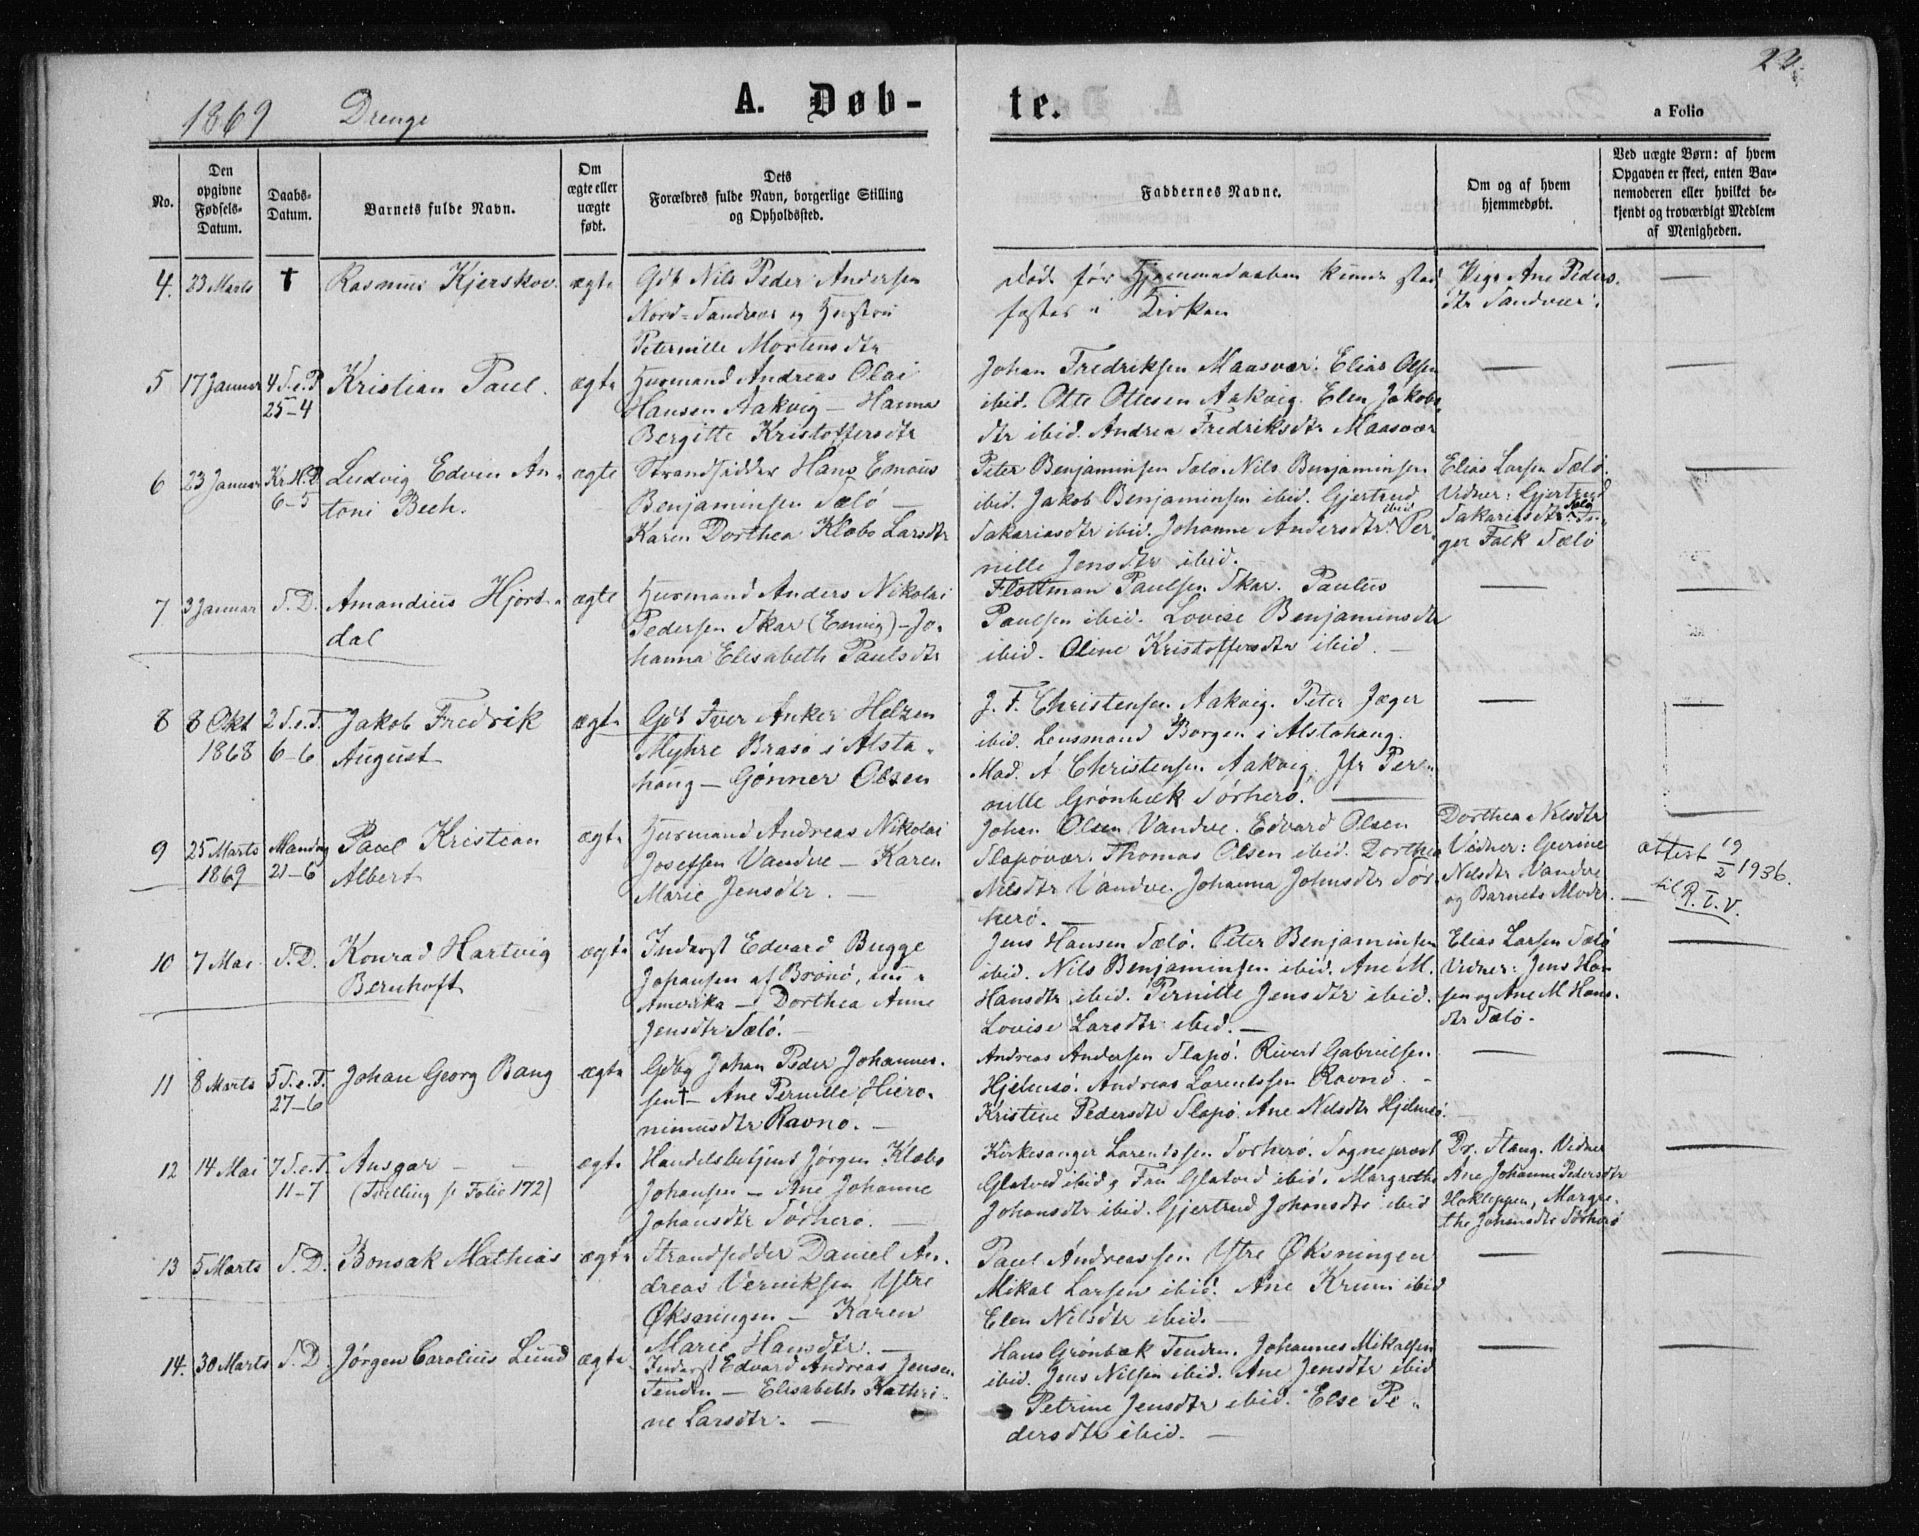 22
1869 Drenge
A. Døb-
te.
a Folio
No.
Den
opgivne
Fødsels-
Datum.
Daabs-
Datum.
Barnets fulde Navn.
Om
ægte eller
uægte
født.
Dets
Forældres fulde Navn, borgerlige Stilling
og Opholdssted.
Faddernes Navne.
Om og af hvem
hjemmedøbt.
Ved uægte Børn: af hvem
Opgaven er skeet, enten Bar-
nemoderen eller hvilket be-
kjendt og troværdigt Medlem
af Menigheden.
4. 23 Marts † Rasmus Kjerskov. ægte
Gbr Nils Peder Andersen
Nord-Sandvær og Hustru
Peternille Mortensdtr
døde før Hjemmedaaben kunde stad
fæstes i Kirken
Pige Ane Peders.
dtr Sandvær.
5 17 Januar 4 S.e.P
25-4
Kristian Paul. ægte
Husmand Andreas Olai
Hansen Aakvig - Hanna
Bergitte Kristoffersdtr
Johan Fredriksen Maasvær. Elias Olsen
ibid. Otte Ottesen Aakvig. Elen Jakobs
dtr ibid. Andrea Fredriksdtr Maasvær
6 23 Januar Kr.H.D
6-5
Ludvig Edvin An-
toni Bech.
ægte
Strandsidder Hans Emaus
Benjaminsen Sælø -
Karen Dorthea Klæbo Larsdtr
Peter Benjaminsen Sælø. Nils Benjaminsen
ibid. Jakob Benjaminsen ibid. Gjertrud
Sakariasdtr ibid. Johanne Andersdtr ibid. Per-
nille Jensdtr ibid.
Elias Larsen Sælø.
Vidner: Gjertrud
Sakariasdtr Sælø
ger Falk Sælø
7 3 Januar S.D. Amandius Hjort-
dal
ægte
Husmand Anders Nikolai
Pedersen Skar (Emvig) - Jo-
hanna Elisabeth Paulsdtr
Flottman Paulsen Skar. Paulus
Paulsen ibid. Lovise Benjaminsdtr
ibid. Oline Kristoffersdtr ibid. -
8 8 Okt
1868
2 S.e.T.
6-6
Jakob Fredrik
August
ægte
Gbr Iver Anker Helzen
Myhre Brasø i Alsta-
houg - Gønner Olsen
J. F. Christensen Aakvig. Peter Jæger
ibid. Lensmand Borgen i Alstahaug.
Mad. A Christensen Aakvig. Jfr Per-
nille Grønbæk Sørherø.
9 25 Marts
1869
Mandag
21-6
Paul Kristian
Albert
ægte
Husmand Andreas Nikolai
Joseffsen Vandve - Karen
Marie Jensdtr.
Johan Olsen Vandve. Edvard Olsen
Slapøvær. Thomas Olsen ibid. Dorthea
Nilsdtr Vandve. Johanna Johnsdtr Sør-
herø. -
Dorthea Nilsdtr
Vidner: Gurine
Nilsdtr Vandve
og Barnets Moder.
attest 19/2 1936.
til R.T.V.
10 7 Mai S.D. Konrad Hartvig
Bernhoft
ægte
Inderst Edvard Bugge
Johansen af Brønø, nu i
Amerika - Dorthea Anne
Jensdtr Sælø. -
Jens Hansen Sælø. Peter Benjaminsen
ibid. Nils Benjaminsen ibid. Ane M.
Hansdtr ibid. Pernille Jensdtr ibid.
Lovise Larsdtr ibid. -
Elias Larsen Sælø
Vidner: Jens Han-
sen og Ane M Hans-
dtr Sælø.
11 8 Marts 5 S.e.T.
27-6
Johan Georg Bang ægte
Gdbg Johan Peder Johannes-
sen † - Ane Pernille Hiero-
nimusdtr Ravnø. -
Andreas Andersen Slapø. Rivert Gabrielsen
Hjelmsø. Andreas Larentssen Ravnø. -
Kristine Pedersdtr Slapø. Ane Nilsdtr Hjelmsø.
12 14 Mai 7 S.e.T.
11-7
Ansgar - -
(Tvilling se Folio 172)
ægte
Handelsbetjent Jørgen Klæbo
Johansen - Ane Johanne
Johansdtr Sørherø. -
Kirkesanger Larentssen Sørherø. Sogneprest
Glatved ibid, Fru Glatved ibid. Margrethe
Johansdtr ibid. Gjertrud Johansdtr ibid
Dr. Stang. Vidner
Ane Johanne Pedersdtr
Hokleppen, Margre-
the Johansdtr Sørherø
13 5 Marts S.D. Bonsak Mathias ægte
Strandsidder Daniel An-
dreas Verniksen Ytre
Øksningen - Karen
Marie Hansdtr. -
Paul Andreassen Ytre Øksningen
Mikal Larsen ibid. Ane Krum ibid
Elen Nilsdtr ibid. -
14. 30 Marts S.D. Jørgen Carolius Lund ægte
Inderst Edvard Andreas Jensen
Tenden - Elisabeth Kathri-
ne Larsdtr. -
Hans Grønbæk Tenden. Johannes Mikalsen
ibid. Jens Nilsen ibid. Ane Jensdtr ibid
Petrine Jensdtr ibid. Else Pe-
dersdtr ibid. -